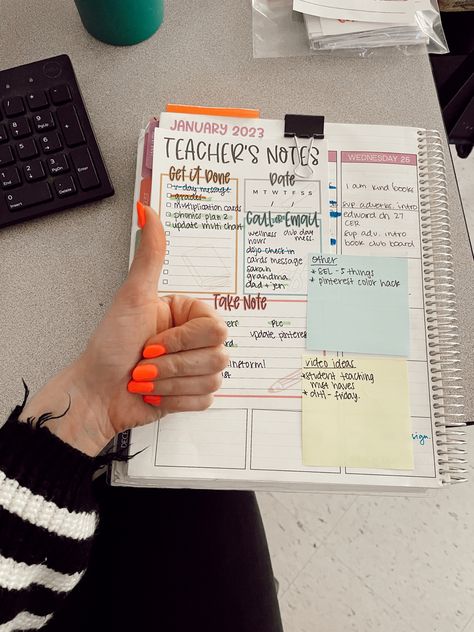 JANUARY 2023
TEACHER'S NOTES
Get it Done
v-day message
grades
multiplication cards
phonics plan 2
update multi chart
Date
M T W T F S S
/ /
Call or Email
wellness
hours
club day
mess.
dojo check in
cards message
sarah
grandma
dad + jen
Take Note
update pinterest
WEDNESDAY 25
I am kind book
sup advisory
edward on 27
CER
sup adv. intro
book club board
other
* SEL - 5 things
* pinterest color hack
video ideas
* student teaching
must haves
* ditl - friday